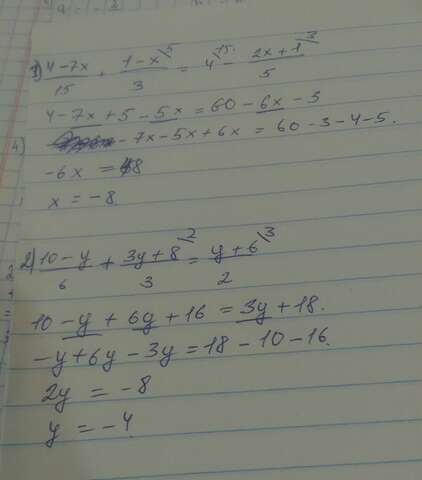 1) (4-7x)/15 + (1-x)/3 \5 = 4 \15 - (2x+1)/5 \3
4-7x+5-5x=60-6x-3
-7x-5x+6x=60-3-4-5.
4)
-6x = 48
x = -8.
2) (10-y)/6 + (3y+8)/3 \2 = (y+6)/2 \3
10-y+6y+16=3y+18.
-y+6y-3y=18-10-16.
2y = -8
y = -4